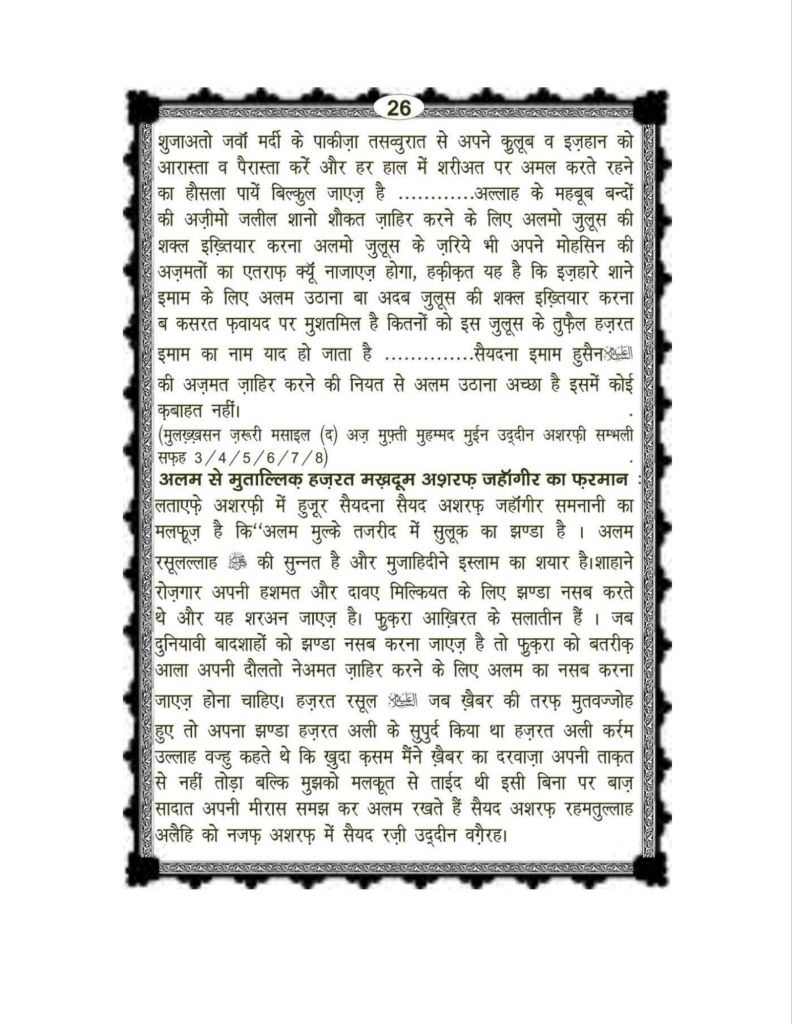 26
शुजाअतो जवाँ मर्दी के पाकीज़ा तसव्वुरात से अपने कुलूब व इज़हान को
आरास्ता व पैरास्ता करें और हर हाल में शरीअत पर अमल करते रहने
का हौसला पायें बिल्कुल जाएज़ है ............अल्लाह के महबूब बन्दों
की अज़ीमो जलील शानो शौकत ज़ाहिर करने के लिए अलमो जुलूस की
शक्ल इख़्तियार करना अलमो जुलूस के ज़रिये भी अपने मोहसिन की
अज़मतों का एतराफ़ क्यूँ नाजाएज़ होगा, हक़ीक़त यह है कि इज़हारे शाने
इमाम के लिए अलम उठाना बा अदब जुलूस की शक्ल इख़्तियार करना
ब कसरत फ़वायद पर मुशतमिल है कितनों को इस जुलूस के तुफ़ैल हज़रत
इमाम का नाम याद हो जाता है ..............सैयदना इमाम हुसैन
की अज़मत ज़ाहिर करने की नियत से अलम उठाना अच्छा है इसमें कोई
क़बाहत नहीं। .
(मुलख़्ख़सन ज़रूरी मसाइल (द) अज़ मुफ़्ती मुहम्मद मुईन उद्दीन अशरफ़ी सम्भली
सफ़ह 3/4/5/6/7/8) .
अलम से मुताल्लिक़ हज़रत मख़दूम अशरफ़ जहाँगीर का फ़रमान :
लताएफ़े अशरफ़ी में हुजूर सैयदना सैयद अशरफ़ जहाँगीर समनानी का
मलफूज़ है कि“अलम मुल्के तजरीद में सुलूक का झण्डा है । अलम
रसूलल्लाह ﷺ की सुन्नत है और मुजाहिदीने इस्लाम का शयार है।शाहाने
रोज़गार अपनी हशमत और दावए मिल्कियत के लिए झण्डा नसब करते
थे और यह शरअन जाएज़ है। फ़ुक़रा आख़िरत के सलातीन हैं । जब
दुनियावी बादशाहों को झण्डा नसब करना जाएज़ है तो फ़ुक़रा को बतरीक़
आला अपनी दौलतो नेअमत ज़ाहिर करने के लिए अलम का नसब करना
जाएज़ होना चाहिए। हज़रत रसूल जब ख़ैबर की तरफ़ मुतवज्जोह
हुए तो अपना झण्डा हज़रत अली के सुपुर्द किया था हज़रत अली कर्रम
उल्लाह वज्हु कहते थे कि ख़ुदा क़सम मैंने ख़ैबर का दरवाज़ा अपनी ताक़त
से नहीं तोड़ा बल्कि मुझको मलकूत से ताईद थी इसी बिना पर बाज़
सादात अपनी मीरास समझ कर अलम रखते हैं सैयद अशरफ़ रहमतुल्लाह
अलैहि को नजफ़ अशरफ़ में सैयद रज़ी उद्दीन वग़ैरह।